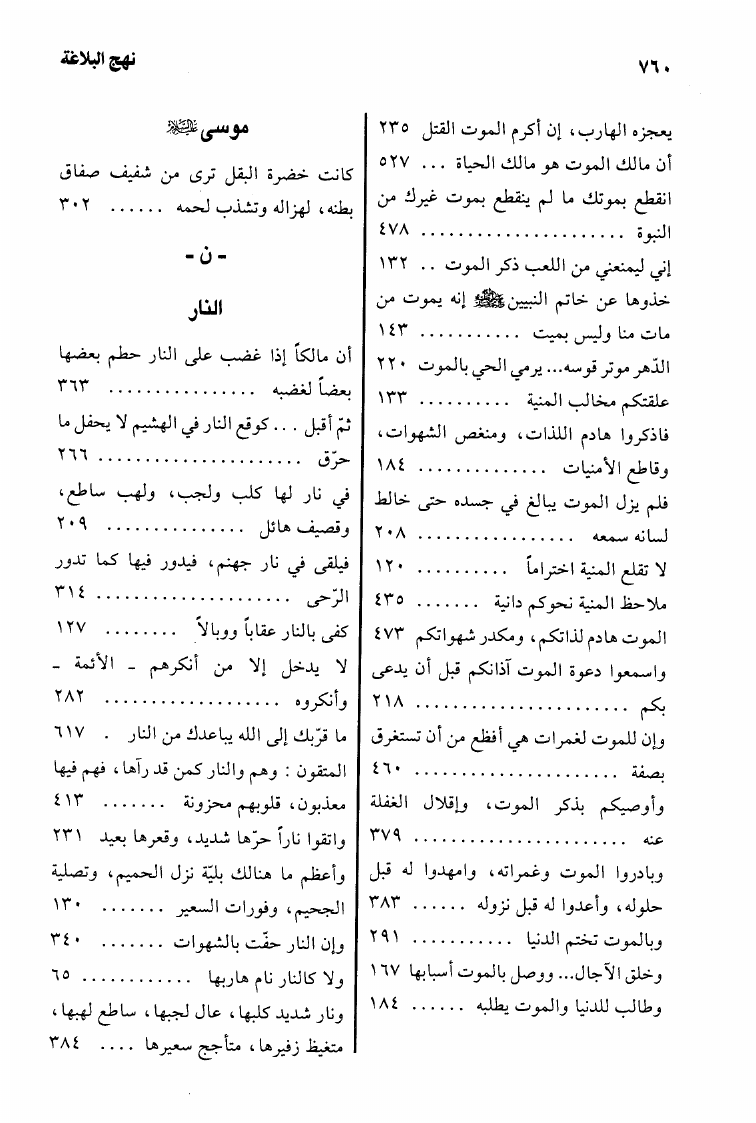 ٧٦٠
نهج البلاغة
يعجزه الهارب، إن أكرم الموت القتل ٢٣٥
أن مالك الموت هو مالك الحياة ... ٥٢٧
انقطع بموتك ما لم ينقطع بموت غيرك من
النبوة ...................... ٤٧٨
إني ليمنعني من اللعب ذكر الموت .. ١٣٢
خذوها عن خاتم النبيين ﷺ إنه يموت من
مات منا وليس بميت ........... ١٤٣
الدّهر موتر قوسه... يرمي الحي بالموت ٢٢٠
علقتكم مخالب المنية .......... ١٣٣
فاذكروا هادم اللذات، ومنغص الشهوات،
وقاطع الأمنيات .............. ١٨٤
فلم يزل الموت يبالغ في جسده حتى خالط
لسانه سمعه ................. ٢٠٨
لا تقلع المنية اختراماً .......... ١٢٠
ملاحظ المنية نحوكم دانية ....... ٤٣٥
الموت هادم لذاتكم، ومكدر شهواتكم ٤٧٣
واسمعوا دعوة الموت آذانكم قبل أن يدعى
بكم ....................... ٢١٨
وإن للموت لغمرات هي أفظع من أن تستغرق
بصفة ...................... ٤٦٠
وأوصيكم بذكر الموت، وإقلال الغفلة
عنه ....................... ٣٧٩
وبادروا الموت وغمراته، وامهدوا له قبل
حلوله، وأعدوا له قبل نزوله ...... ٣٨٣
وبالموت تختم الدنيا ........... ٢٩١
وخلق الآجال... ووصل بالموت أسبابها ١٦٧
وطالب للدنيا والموت يطلبه ...... ١٨٤
موسى عليه السلام
كانت خضرة البقل ترى من شفيف صفاق
بطنه، لهزاله وتشذب لحمه ...... ٣٠٢
- ن -
النار
أن مالكاً إذا غضب على النار حطم بعضها
بعضاً لغضبه ................ ٣٦٣
ثمّ أقبل ... كوقع النار في الهشيم لا يحفل ما
حرّق ...................... ٢٦٦
في نار لها كلب ولجب، ولهب ساطع،
وقصيف هائل ............... ٢٠٩
فيلقى في نار جهنم، فيدور فيها كما تدور
الرّحى ..................... ٣١٤
كفى بالنار عقاباً ووبالاً ........ ١٢٧
لا يدخل إلا من أنكرهم - الأئمة -
وأنكروه ................... ٢٨٢
ما قرّبك إلى الله يباعدك من النار . ٦١٧
المتقون : وهم والنار كمن قد رآها، فهم فيها
معذبون، قلوبهم محزونة ....... ٤١٣
واتقوا ناراً حرّها شديد، وقعرها بعيد ٢٣١
وأعظم ما هنالك بليّة نزل الحميم، وتصلية
الجحيم، وفورات السعير ....... ١٣٠
وإن النار حفّت بالشهوات ....... ٣٤٠
ولا كالنار نام هاربها ............ ٦٥
ونار شديد كلبها، عال لجبها، ساطع لهبها،
متغيظ زفيرها، متأجج سعيرها .... ٣٨٤